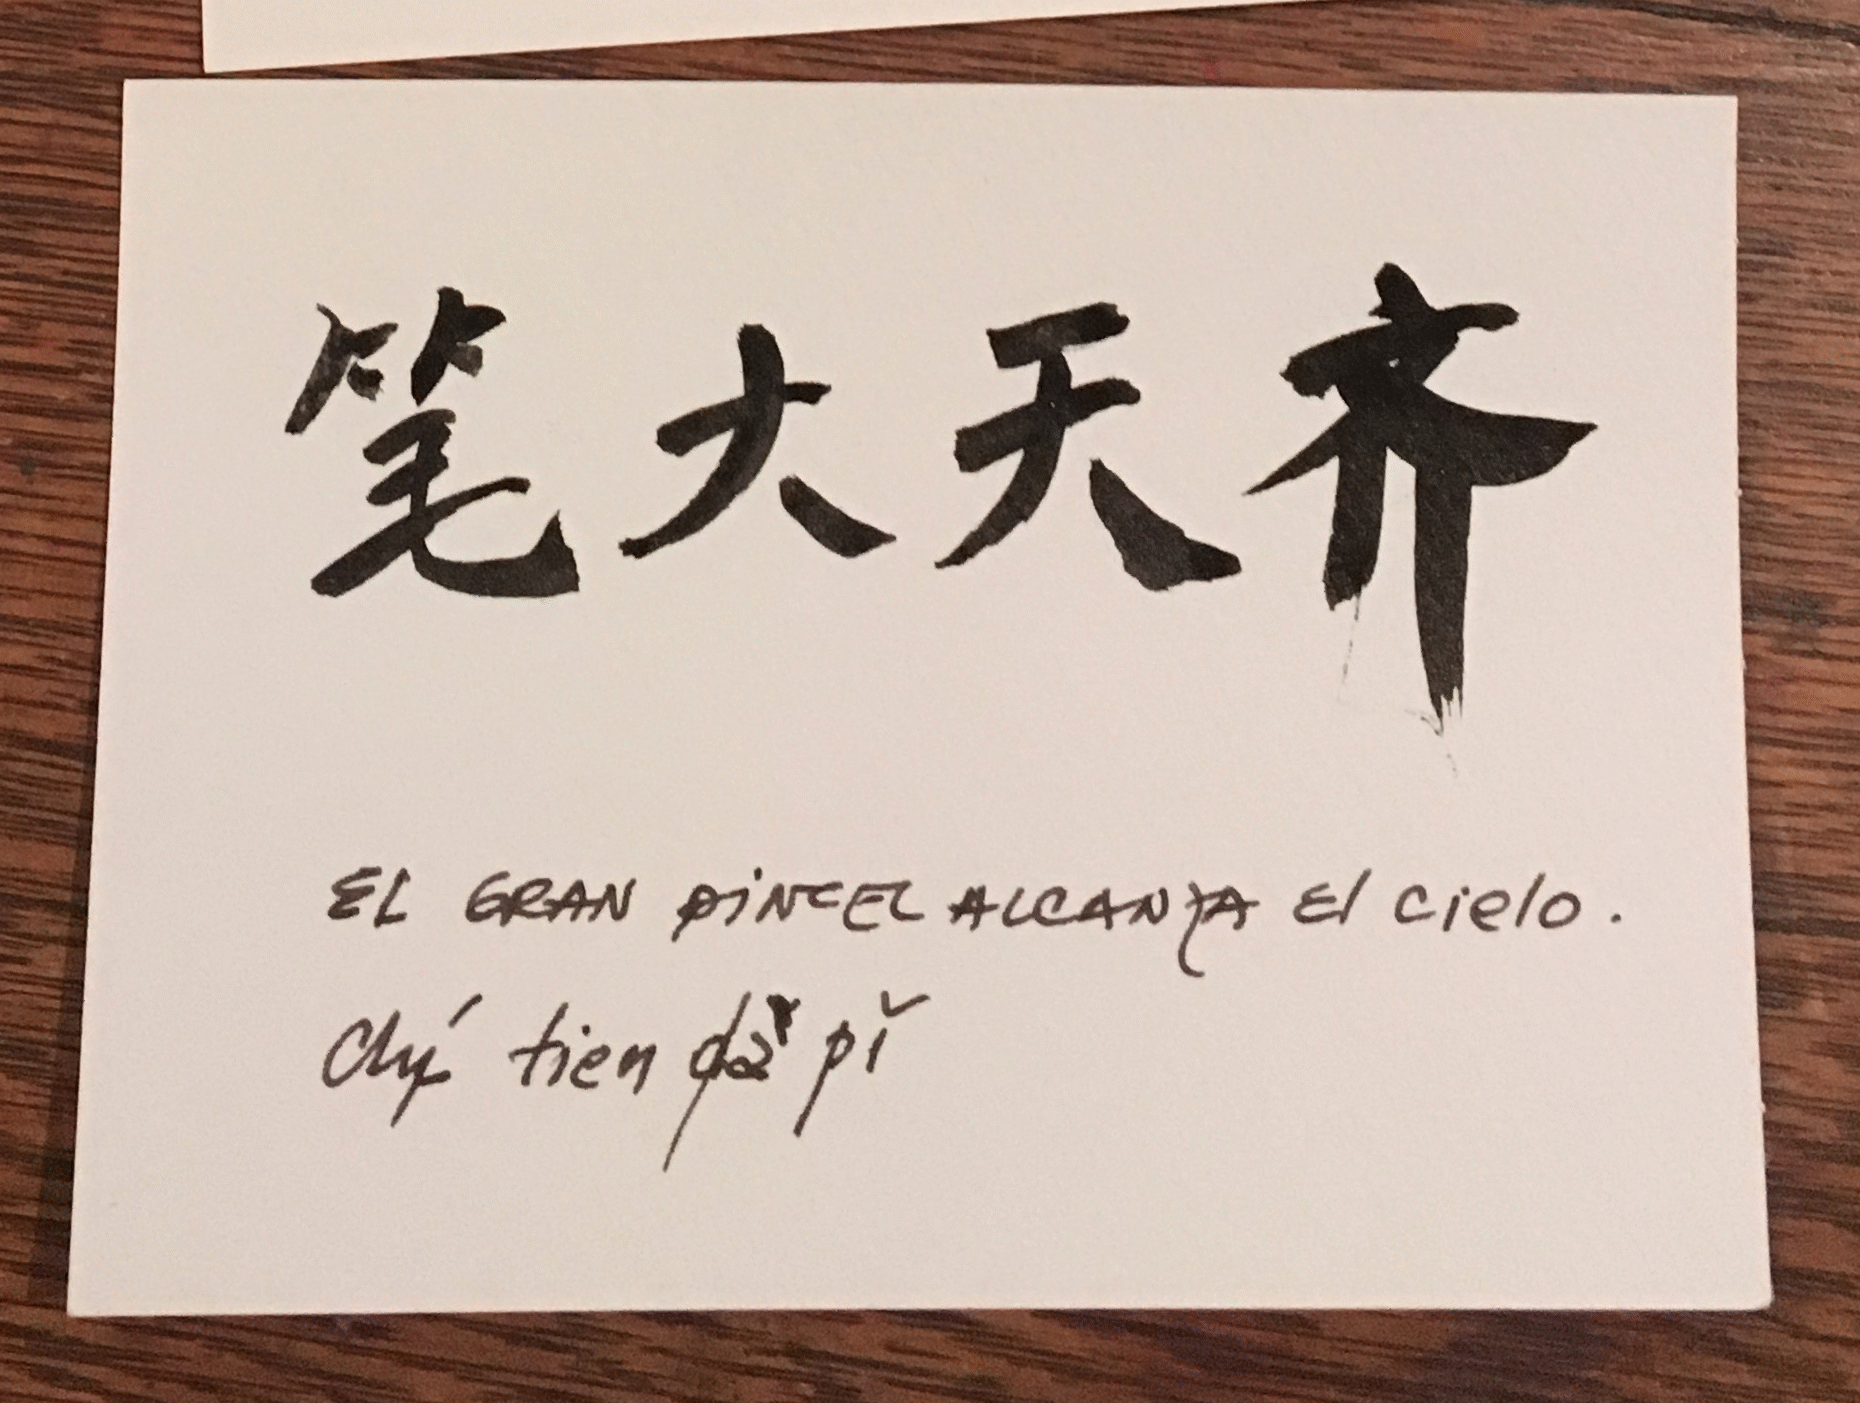 笔大天齐
EL GRAN PINCEL ALCANZA El cielo.
Chí tien dà pǐ